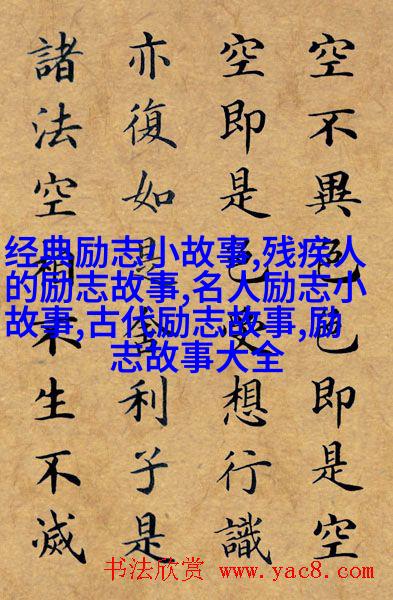 空不異色色即是空
空即是色受想行識
亦復如是舍利子是
諸法空相不生不滅
经典励志小故事,残疾人
的励志故事,名人励志小
故事,古代励志故事,励
志故事大全
书法欣赏 www.yac8.com